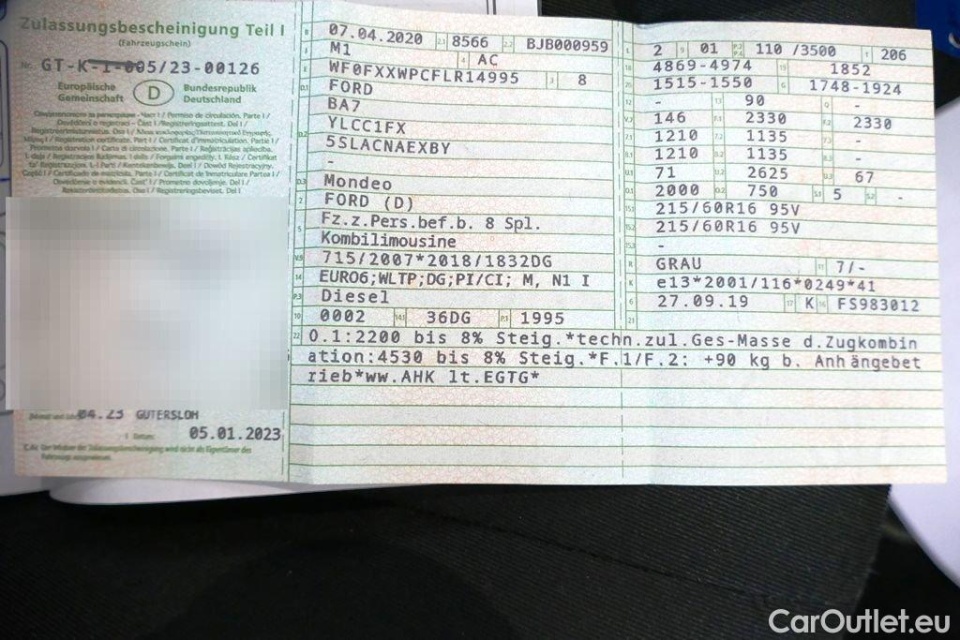 Zulassungsbescheinigung Teil I
(Fahrzeugschein)
Nr. GT-K-1-005/23-00126
Europäische Gemeinschaft
D
Bundesrepublik Deutschland
04.23 GÜTERSLOH
05.01.2023
07.04.2020 2.1 8566 2.2 BJB000959
J M1 4 AC
E WF0FXXWPCFLR14995 3 8
D.1 FORD
BA7
D.2 YLCC1FX
5SLACNAEXBY
-
D.3 Mondeo
2 FORD (D)
5 Fz.z.Pers.bef.b. 8 Spl.
Kombilimousine
V.9 715/2007*2018/1832DG
14 EURO6;WLTP;DG;PI/CI; M, N1 I
P.3 Diesel
10 0002 14.1 36DG P.1 1995
L 2 9 01 P.2 P.4 110 /3500 T 206
18 4869-4974 19 1852
20 1515-1550 G 1748-1924
12 - 13 90 Q -
V.7 146 F.1 2330 F.2 2330
7.1 1210 7.2 1135 7.3 -
8.1 1210 8.2 1135 8.3 -
U.1 71 U.2 2625 U.3 67
O.1 2000 O.2 750 S.1 5 S.2 -
15.1 215/60R16 95V
15.2 215/60R16 95V
15.3 -
R GRAU 11 7/-
K e13*2001/116*0249*41
6 27.09.19 17 K 16 FS983012
21
22 O.1:2200 bis 8% Steig.*techn.zul.Ges-Masse d.Zugkombin
ation:4530 bis 8% Steig.*F.1/F.2: +90 kg b. Anhängebet
rieb*ww.AHK lt.EGTG*
CarOutlet.eu